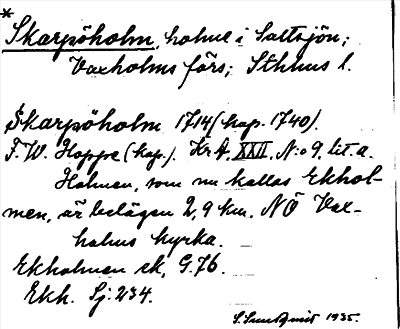 *
Skarpöholm, holme i Saltsjön;
Vaxholms förs; Sthlms l.
Skarpöholm 1714 (kop. 1740).
F. W. Hoppe (kop.). Kr A, XXII, N:o 9, lit. a.
Holmen, som nu kallas Ekhol-
men, är belägen 2,9 km. NÖ Vax-
holms kyrka.
Ekholmen ek, G. 76.
Ekh. Sj: 234.
1935.